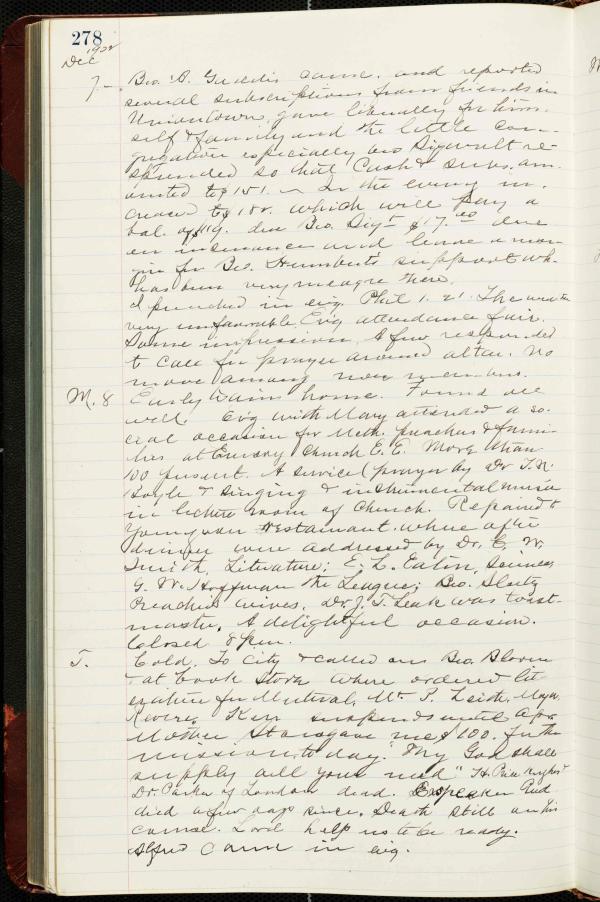 278
Dec 1902
7 - Bro. B. Geddis came. and reported
several subscriptions from friends in
Uniontown, gave liberally for him-
self & family and the little con-
gregation especially bro Sigwalt re-
sponded so that Cash & subs. am-
ounted to $151. - In the evening in-
creased to $ which will pay a
bal. of due Bro. Sigt $17.00 due
on insurance and leave a mar-
gin for Bro. Humbert's support wh.
has been very meagre there.
I preached in evg. Phil 1.21. The weather
very unfavorable. Evg attendance fair.
Some impression. A few responded
to call for prayer around altar. No
move among non members.
M. 8 Early train home. Found all
well. Evg with Mary attended a so-
cial occasion for Meth. preachers & fami-
lies at Emory Church E. E. More than
100 present. A service (prayer by Dr T. N.
Boyle & singing & instrumental music
in lecture room of Church. Repaired to
restaurant. where after
dinner were addressed by Dr. C. W.
Smith, Literature; E. L. Eaton, Science;
G. W. Hoffman the League; Bro. Sleet
Preachers wives. Dr. J. T. Leak was toast-
master. A delightful occasion.
Closed 8 p.m.
T. Cold. To City & called on Bro. Bloom
at book store where ordered lit-
erature for Mutual. Mr P. Leish. Mayor
Revere, Kerr suspends until Apr.
Mother gave me $100. for the
mission to day. "My God shall
supply all your need" H. Price Hughes &
Dr. Parker of London dead. Exspeaker Reed
died a few days since. Death still on his
course. Lord help us to be ready.
Alfred came in evg.